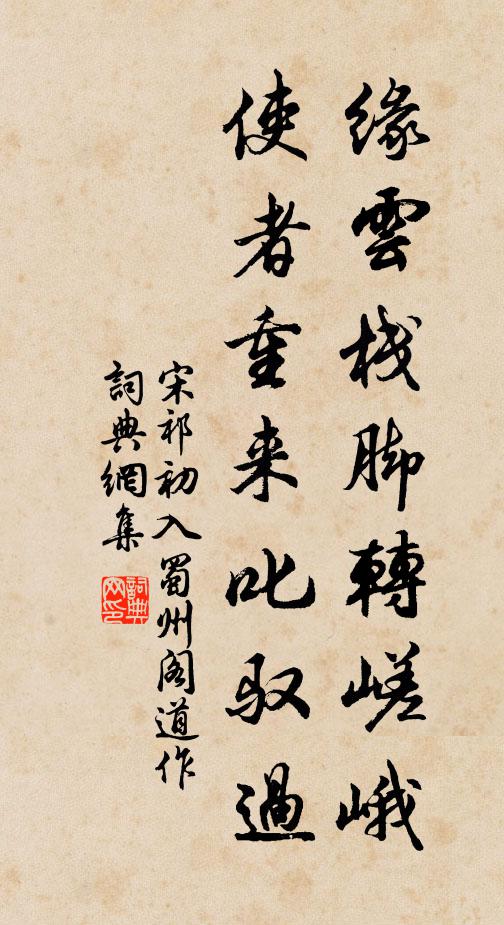 緣雲棧脚轉嵯峨
使者重来叱馭過
宋祁初入蜀州阁道作
詞典網集
詞典网印